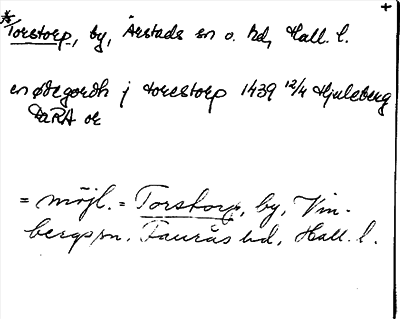 +
*Torstorp, by, Årstads sn o. hd, Hall. l.
en ødegordh j torestorp 1439 12/4 Hjuleberg
DaRA or
= möjl. = Torstorp, by, Vin-
bergs sn. Faurås hd, Hall. l.